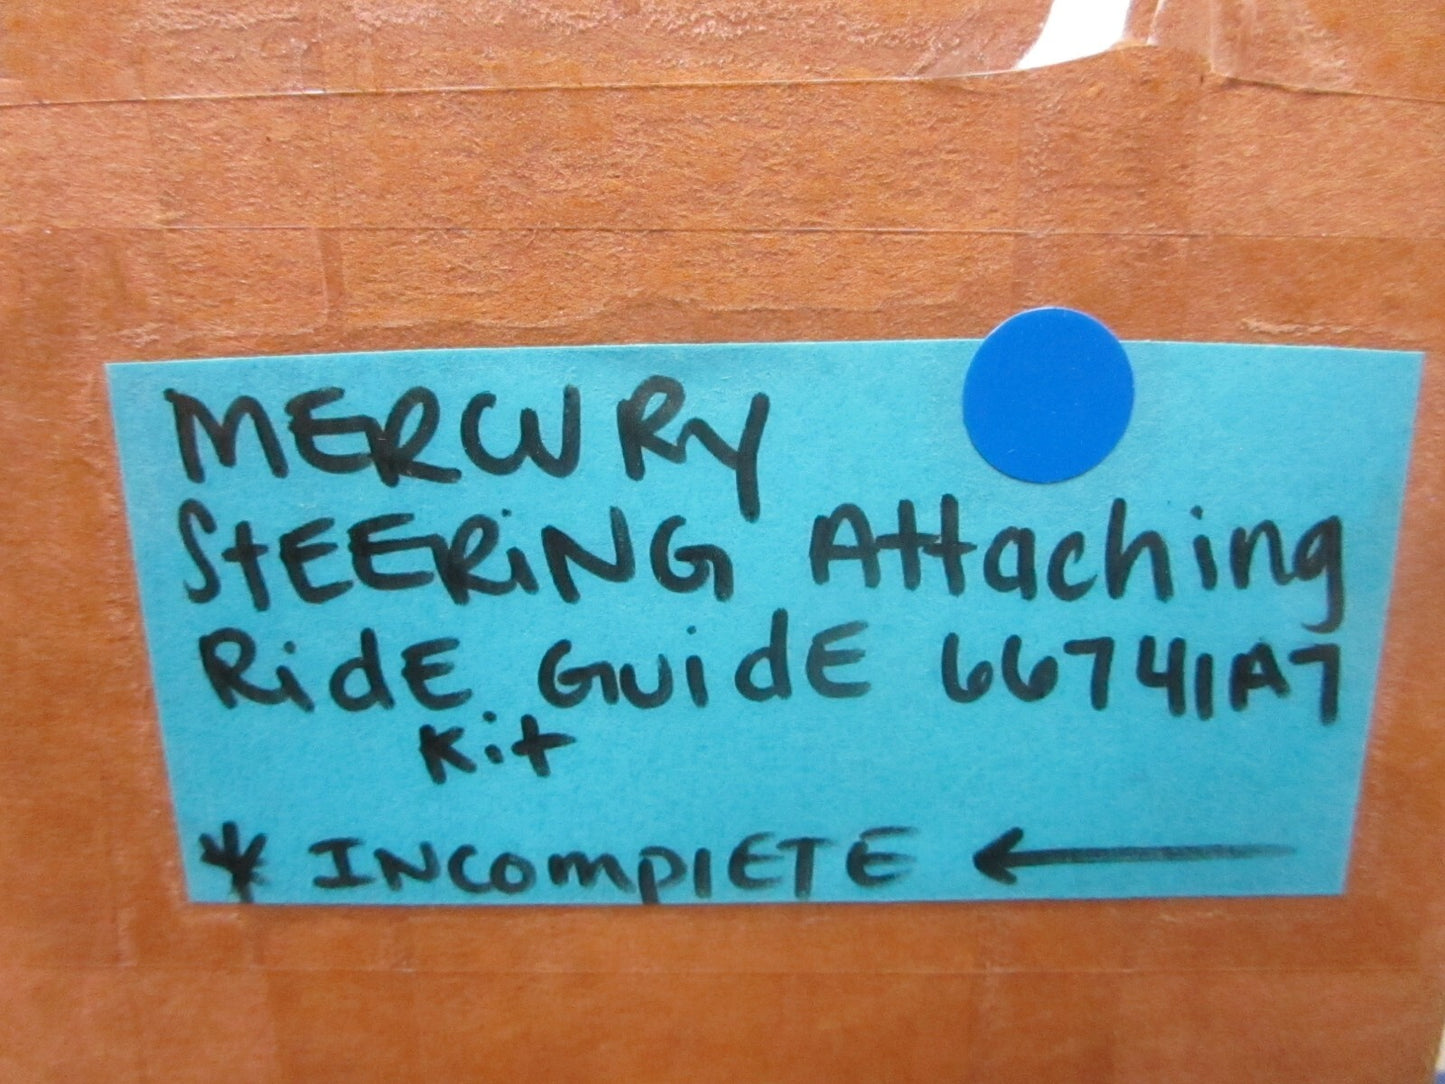 MERCURY
STEERING Attaching
RidE GuidE 66741A7
Kit
* INComplETE ←